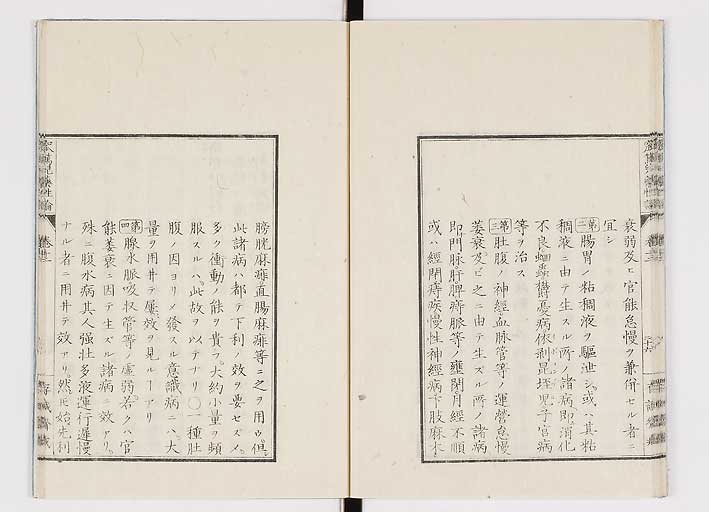 衰弱及ヒ官能怠慢ヲ兼併セル者ニ
宜シ
第二腸胃ノ粘稠液ヲ驅泄シ或ハ其粘
稠液ニ由テ生スル所ノ諸病即消化
不良蛔蟲欝憂病依剥昆垤児子宮病
等ヲ治ス
第三肚腹ノ神經血脉管等ノ運營怠慢
萎衰及ビ之ニ由テ生ズル所ノ諸病
即門脉肝脾膵脉等ノ壅閉月經不順
或ハ經閉痔疾慢性神經病下肢麻木
膀胱麻痺直腸麻痺等ニ之ヲ用ウ但
此諸病ハ都テ下利ノ效ヲ要セズメ
多ク衝動ノ能ヲ貴ブ大約小量ヲ頻
服スルハ此故ヲ以テナリ〇一種肚
腹ノ因ヨリメ發スル意識病ニハ大
量ヲ用井テ屢效ヲ見ルヿアリ
第四腺水脉吸収管等ノ虚弱若クハ官
能萎衰ニ因テ生ズル諸病ニ效アリ
殊ニ腹水病其人强壮多液運行遲慢
ナル者ニ用井テ效アリ然𪜈始先利